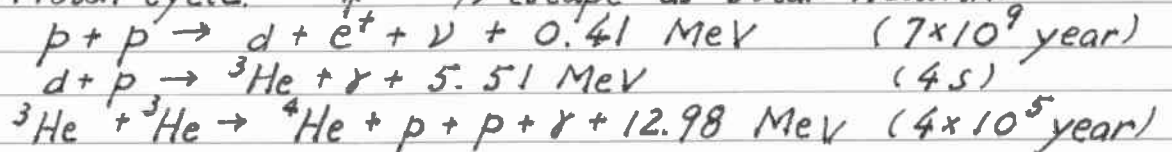 p + p → d + e⁺ + ν + 0.41 MeV (7×10⁹ year)
d + p → ³He + γ + 5.51 MeV (4s)
³He + ³He → ⁴He + p + p + γ + 12.98 MeV (4×10⁵ year)